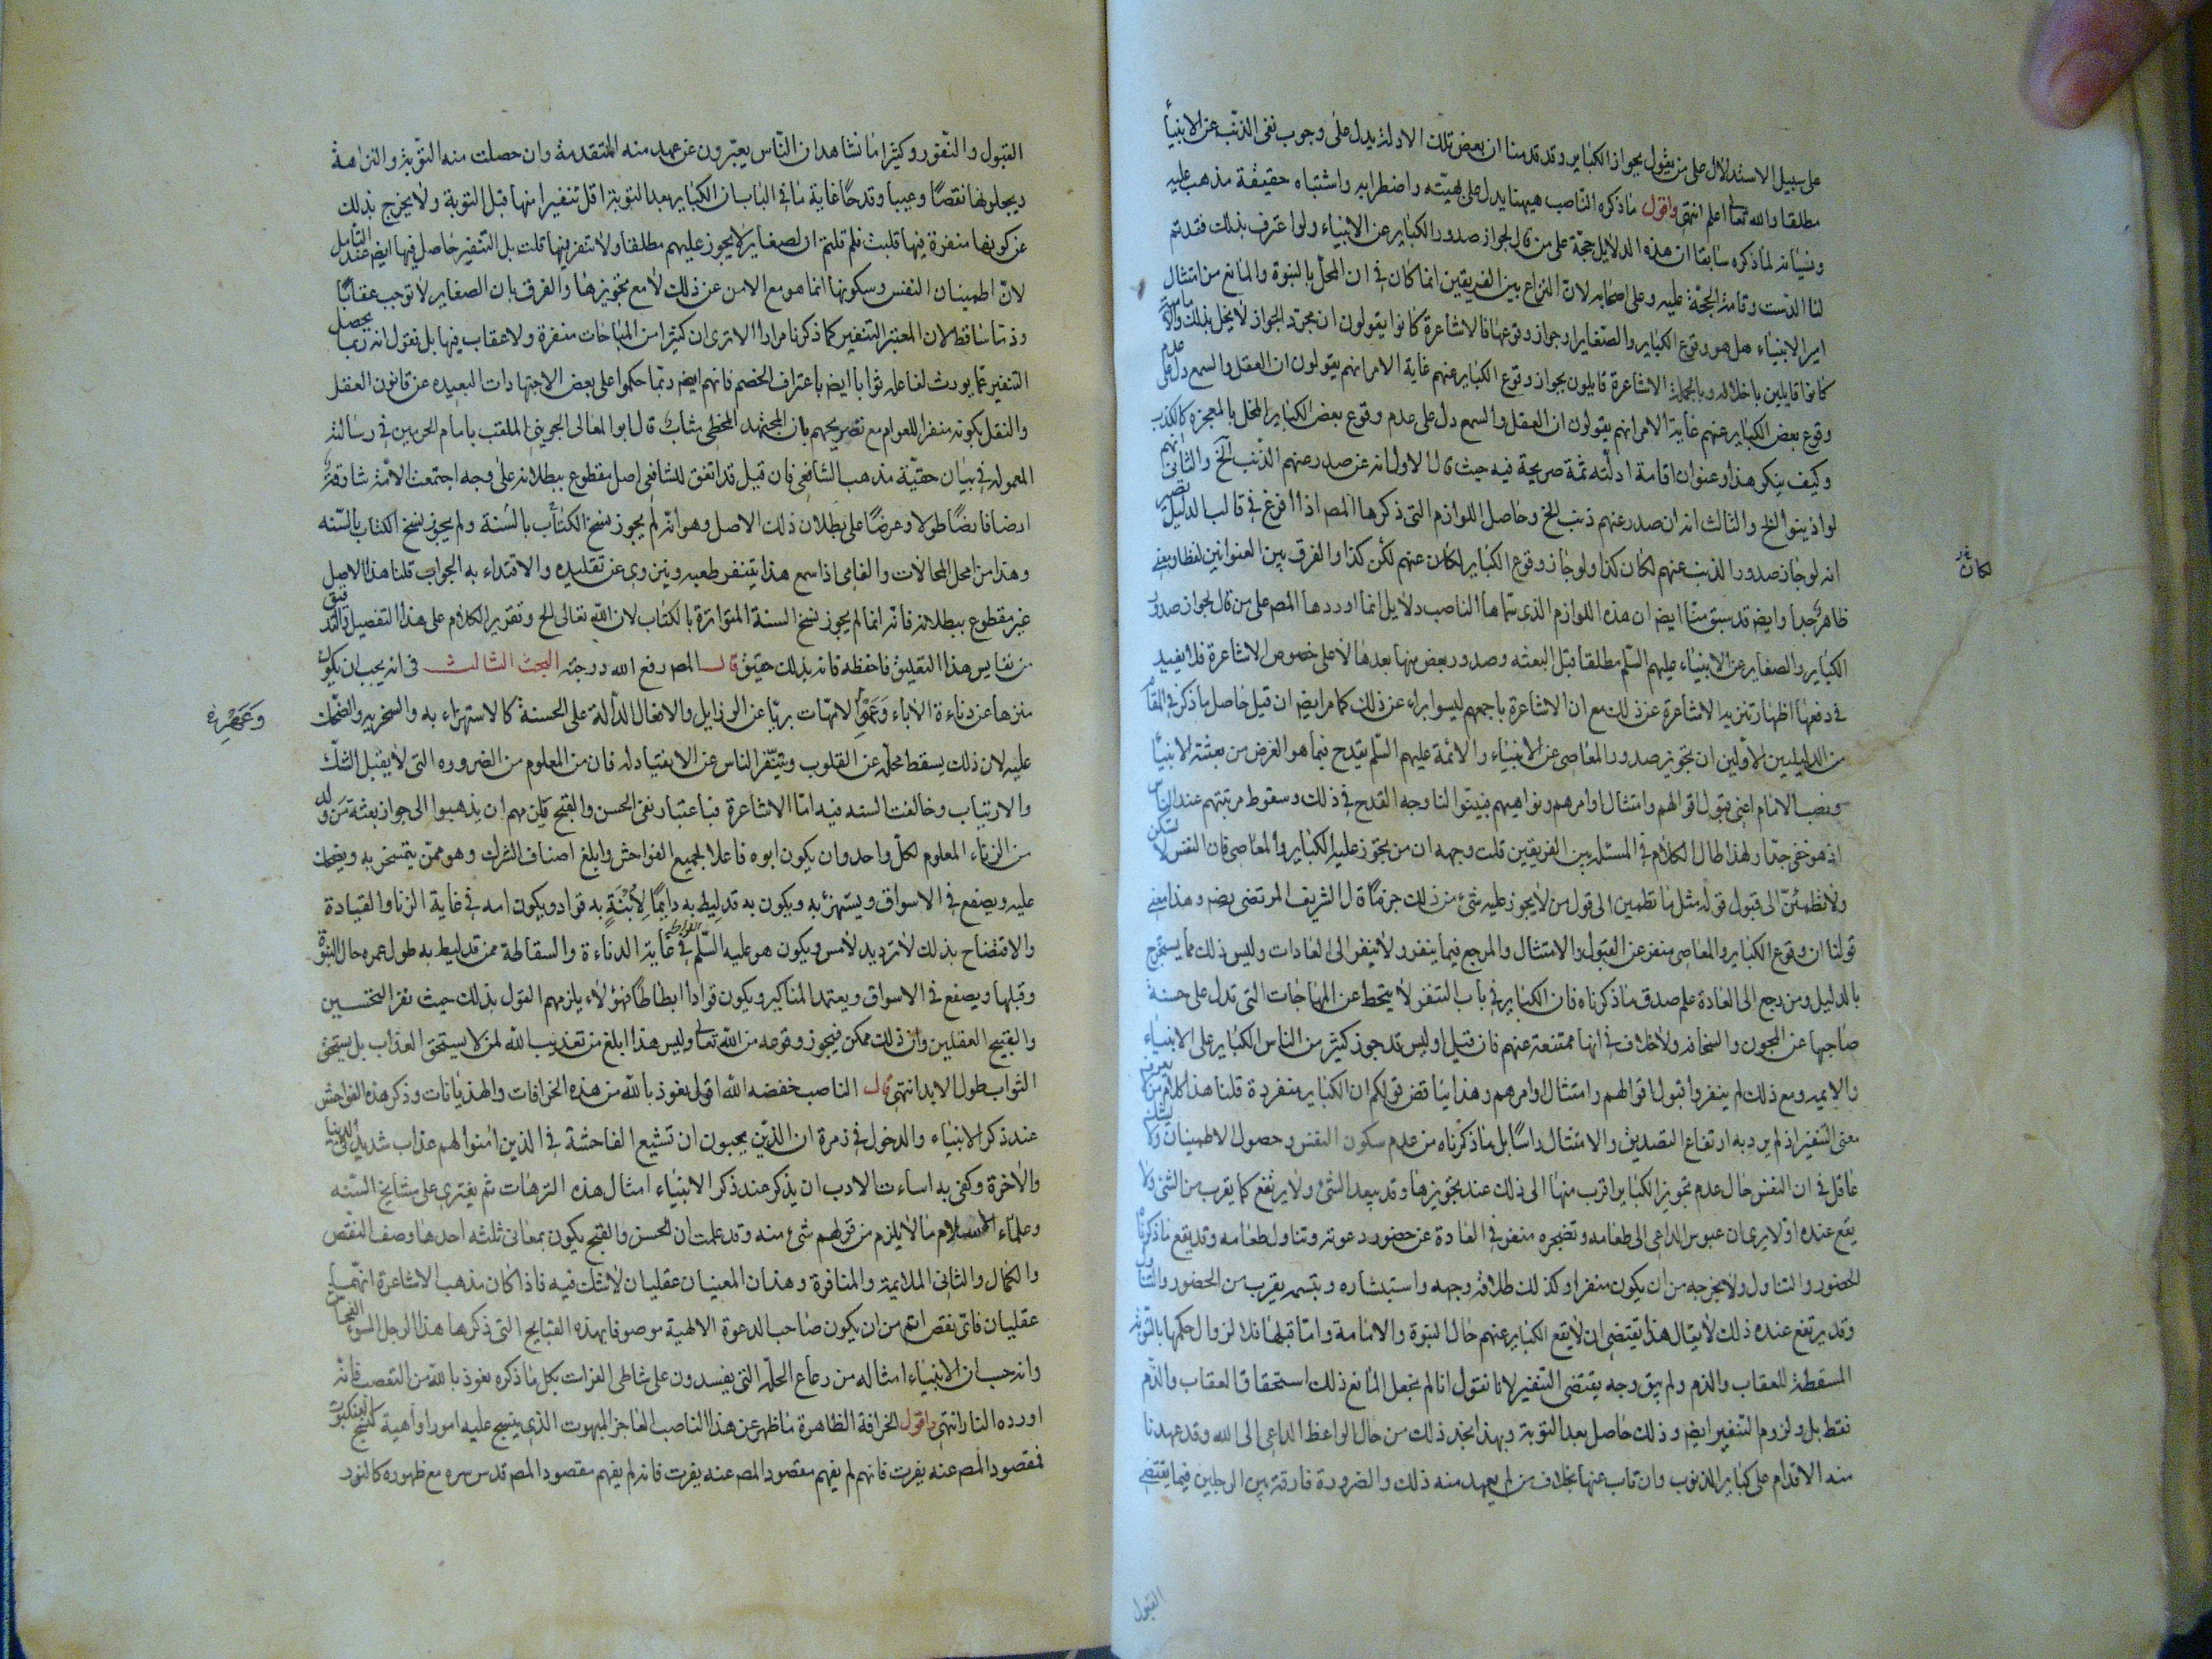 على سبيل الاستدلال على من يقول بجواز الكباير وقد قدمنا ان بعض تلك الادلة يدل على وجوب نفى الذنب عن الانبيأ
مطلقا والله تعالى اعلم انتهى واقول ما ذكره الناصب هيهنا يدل على بهيته واضطرابه واشتباه حقيقة مذهب عليه
ونسيانه لما ذكره سابقا ان هذه الدلايل حجة على من قال بجواز صدور الكباير عن الانبياء ولو اعترف بذلك فقد تم
لنا الدست وقامت الحجة عليه وعلى اصحابه لان النزاع بين الفريقين انما كان في ان المخل بالنبوة والمانع من امتثال
امر الانبياء هل هو وقوع الكباير والصغاير او جواز وقوعها فالاشاعرة كانوا يقولون ان مجرد الجواز لا يخل بذلك والامامية
كانوا قايلين باخلاله وبالجملة الاشاعرة قايلون بجواز وقوع الكباير عنهم غاية الامر انهم يقولون ان العقل والسمع دل على عدم
وقوع بعض الكباير عنهم غاية الامر انهم يقولون ان العقل والسمع دل على عدم وقوع بعض الكباير المخل بالمعجزه كالكذب
وكيف ينكر هذا وعنوان اقامة ادلته ثمة صريحة فيه حيث قال الاول انه عن صدر عنهم الذنب الخ والثانى انهم
لو اذنبوا الخ والثالث انه ان صدر عنهم ذنب الخ وحاصل اللوازم التى ذكرها المص اذا افرغ في قالب الدليل يصير
انه لو جاز صدور الذنب عنهم لكان كذا ولو جاز وقوع الكباير لكان عنهم لكن كذا والفرق بين العنوانين لفظا ومعنى
لكان
ظاهر جدا وايضا قد سبق منا ايضا ان هذه اللوازم الذى سماها الناصب دلايل انما اوردها المص على من قال بجواز صدور
الكباير والصغاير عن الانبياء عليهم السلم مطلقا قبل البعثه وصدور بعض منها بعدها لا على خصوص الاشاعرة فلا يفيد
في دفعها اظهار تنزيه الاشاعرة عن ذلك مع ان الاشاعرة باجمعهم ليسوا براء عن ذلك كما مر ايضا ان قيل حاصل ما ذكر في المقام
من الدليلين الاولين ان تجويز صدور المعاصى عن الانبياء والائمة عليهم السلم يقدح فيما هو الغرض من بعثة الانبيأ
ونصب الامام اعنى قبول اقوالهم وامتثال اوامرهم ونواهيهم فبينوا لنا وجه القدح في ذلك وسقوط مرتبتهم عند الناس
اذ هو خفى جدا ولهذا طال الكلام في المسئلة بين الفريقين قلت وجهه ان من يجوز عليه الكباير والمعاصى فان النفس لا تسكن
ولا تطمئن الى قبول قوله مثل ما تطمين الى قول من لا يجوز عليه شئ من ذلك جزما قال الشريف المرتضى رضه وهذا معنى
قولنا ان وقوع الكباير والمعاصى منفر عن القبول والامتثال والمرجع فيما ينفر ولا ينفر الى العادات وليس ذلك مما يستخرج
بالدليل ومن رجع الى العادة علم صدق ما ذكرناه فان الكباير في باب التنفر لا ينحط عن المباحات التى تدل على خسة
صاحبها عن المجون والسخافه ولا خلاف في انها ممتنعة عنهم فان قيل اوليس قد جوز كثير من الناس الكباير على الانبياء
والايمه ومع ذلك لم ينفروا قبول اقوالهم وامتثال اوامرهم وهذا يناقض قولكم ان الكباير منفردة قلنا هذا كلام من لا يعرف
معنى التنفير اذ لم يرد به ارتفاع التصديق والامتثال راسا بل ما ذكرناه من عدم سكون النفس وحصول الاطمينان ولا يشك
عاقل في ان النفس حال عدم تجويز الكباير اقرب منها الى ذلك عند تجويزها وقد يبعد الشئ ولا يرتفع كما يقرب من الشئ ولا
يقع عنده اولا يرى ان عبوس الداعى الى طعامه وتضجره منفر في العادة عن حضور دعوته وتناول طعامه وقد يقع ما ذكرناه
الحضور والتناول ولا يخرجه من ان يكون منفرا وكذلك طلاقة وجهه واستبشاره وتبسمه يقرب من الحضور والتناول
وقد يرتفع عنده ذلك لا يقال هذا يقتضى ان لا يقع الكباير عنهم حال النبوة والامامة واما قبلها فلا لزوال حكمها بالتوبة
المسقطة للعقاب والذم ولم يبق وجه يقتضى التنفير لانا نقول انا لم نجعل المانع ذلك استحقاق العقاب والذم
فقط بل ولزوم التنفير ايضا وذلك حاصل بعد التوبة وبهذا نجد ذلك من حال الواعظ الداعى الى الله وقد عهدنا
منه الاقدام على كباير الذنوب وان تاب عنها بخلاف من لم يعهد منه ذلك والضرورة فارقة بين الرجلين فيما يقتضى
القبول
القبول والنفور وكثيرا ما نشاهد ان الناس يعبرون عن عهد منه المتقدمة وان حصلت منه التوبة والنزاهة
ويجعلونها نقصا وعيبا وقدحا غاية ما في الباب ان الكباير بعد التوبة اقل تنفيرا منها قبل التوبة ولا يخرج بذلك
عن كونها منفرة فيها قلبت فلم قلتم ان الصغاير لا يجوز عليهم مطلقا ولا تنفر فيها قلت بل التنفير حاصل فيها ايضا عند التأمل
لان اطمينان النفس وسكونها انما هو مع الامن عن ذلك لا مع تجويزها والفرق بان الصغاير لا توجب عقابا
وذما ساقط لان المعتبر التنفير كما ذكرنا مرارا الا ترى ان كثيرا من المباحات منفرة ولا عقاب فيها بل نقول انه ربما يحصل
التنفير عما يورث لفاعله ثوابا ايضا باعتراف الخصم فانهم ايضا ربما حكموا على بعض الاجتهادات البعيده عن قانون العقل
والنقل بكونه منفرا للعوام مع تصريحهم بان المجتهد المخطى مثاب قال ابو المعالى الجوينى الملقب بامام الحرمين في رسالته
المعموله في بيان حقيّة مذهب الشافعى فان قيل قد اتفق للشافعى اصل مقطوع ببطلانه على وجه اجتمعت الامة شارقة
ارضا فارضا طولا وعرضا على بطلان ذلك الاصل وهو انه لم يجوز نسخ الكتاب بالسنة ولم يجوز نسخ الكتاب بالسنه
وهذا من امحل المحالات والعامى اذا سمع هذا يتنفر طعبه وينزوى عن تقليده والاقتداء به الجواب قلنا هذا الاصل
غير مقطوع ببطلانه فانه انما لم يجوز نسخ السنة المتواترة بالكتاب لان الله تعالى الخ وتقرير الكلام على هذا التفصيل والتدقيق
من نفايس هذا التعليق فاحفظه فانه بذلك حقيق قال المص رفع الله درجته البحث الثالث في انه يجب ان يكون
منزها عن دناءة الاباء وعهر الامهات بريا عن الرذايل والافعال الدالة على الخسة كالاستهزاء به والسخريه والضحك
وعهر
عليه لان ذلك يسقط محله عن القلوب وينفر الناس عن الانقياد له فان من المعلوم من الضروره التى لا يقبل الشك
والارتياب وخالفت السنه فيه اما الاشاعرة فباعتبار نفى الحسن والقبح يلزمهم ان يذهبوا الى جواز بعثة من ولد
من الزناء المعلوم لكل واحد وان يكون ابوه فاعلا لجميع الفواحش وابلغ اصناف الشرك وهو ممن يتمسخر به ويضحك
عليه ويصفع في الاسواق ويستهزء به ويكون به قد ليط به دايما لابنة به قواد ويكون امه في غاية الزنا والقيادة
والافتضاح بذلك لا ترد يد لامس ويكون هو عليه السلم في غاية الدناءة والسقاطة ممن قد ليط به طول عمره حال النبوة
وقبلها ويصفع في الاسواق ويعتمد المناكير ويكون قوادا ابطاطا فهؤلاء يلزمهم القول بذلك حيث نفوا التحسين
والتقبيح العقليين وان ذلك ممكن فيجوز وقوعه من الله تعالى وليس هذا ابلغ من تعذيب الله لمن لا يستحق العذاب بل يستحق
الثواب طول الابد انتهى قال الناصب خفضه الله اقول نعوذ بالله من هذه الخرافات والهذيانات وذكر هذه الفواحش
عند ذكر الانبياء والدخول في زمرة ان الذين يحبون ان تشيع الفاحشة في الذين امنوا لهم عذاب شديد في الدنيا
والاخرة وكفى به اساءت الادب ان يذكر عند ذكر الانبياء امثال هذه الترهات ثم يفترى على مشايخ السنه
وعلماء الاسلام ما لا يلزم من قولهم شئ منه وقد علمت ان الحسن والقبح يكون بمعانى ثلثه احدها وصف النقص
والكمال والثانى الملايمة والمنافرة وهذان المعنيان عقليان لا شك فيه فاذا كان مذهب الاشاعرة انهما
عقليان فاى نقص اتم من ان يكون صاحب الدعوة الالهية موصوفا بهذه القبايح التى ذكرها هذا الرجل السوء الفحاش
وانه حسب ان الانبياء امثاله من رعاع الحلة التى يفسدون على شاطى الفرات بكل ما ذكره نعوذ بالله من التعصب فانه
اورده النار انتهى واقول الخرافة الظاهرة ما ظهر عن هذا الناصب العاجز المبهوت الذى ينسج عليه امورا واهية كنسج العنكبوت
فمقصود المص عنه يفرت فانهم لم يفهم مقصود المص عنه يفرت فانه لم يفهم مقصود المص قدس سره مع ظهوره كالنور